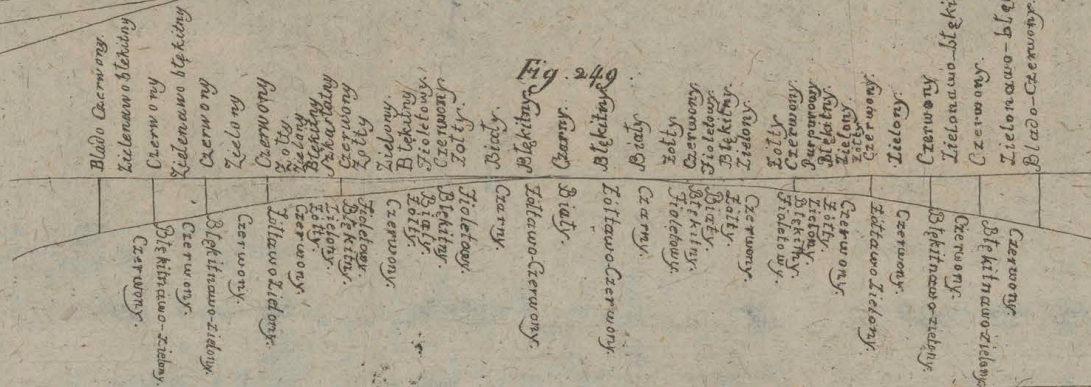 Fig. 249.
Blado Czerwony.
Zielenawo błękitny
Czerwony
Zielenawo błękitny
Czerwony
Zielony
Czerwony
Żołty
Zielony
Błękitny
Szkarłatny
Czerwony
Żołty
Zielony
Błękitny
Fioletowy.
Czerwony
Żołty.
Biały.
Błękitny.
Czarny.
Błękitny
Biały
Żołty
Czerwony.
Fioletowy.
Błękitny.
Zielony.
Żołty
Czerwony.
Purpurowy
Błękitny.
Zielony
Żołty
Czerwony.
Zielony.
Czerwony
Zielonawo-błęki
Czerwony.
Zielonawo-błę
Blado-Czerwony.
Czerwony.
Błękitnawo-zielony.
Czerwony.
Błękitnawo-zielony.
Czerwony.
Żółtawo Zielony.
Czerwony.
Żołty.
Zielony.
Błękitny.
Fioletowy.
Czerwony.
Żołty.
Biały.
Błękitny.
Fioletowy.
Czarny.
Żółtawo-Czerwony.
Biały.
Żółtawo-Czerwony.
Czarny.
Fioletowy.
Błękitny.
Biały.
Żołty.
Czerwony.
Fioletowy.
Błękitny.
Zielony.
Żołty.
Czerwony.
Żółtawo Zielony.
Czerwony.
Błękitnawo-zielony.
Czerwony.
Błękitnawo-zielony
Czerwony.